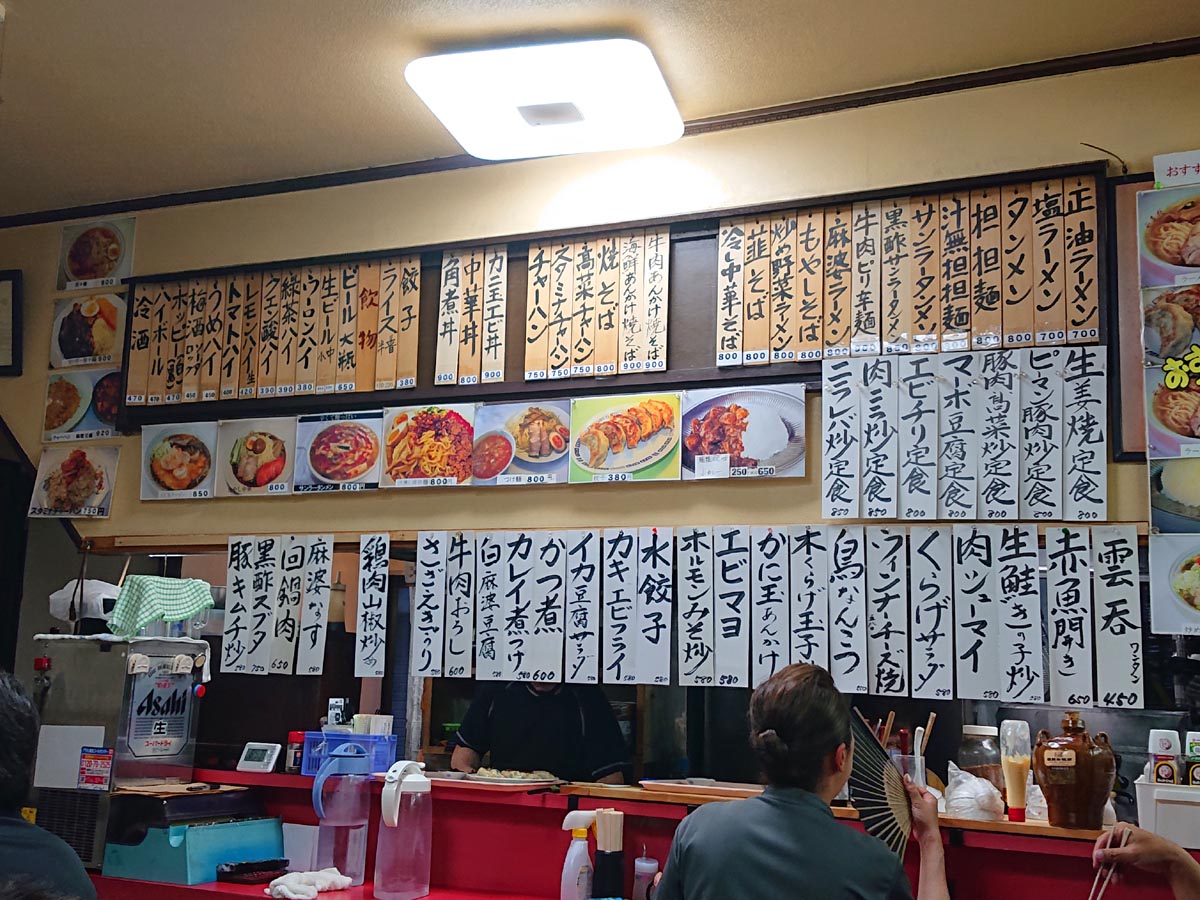 正油ラーメン 700
塩ラーメン 700
タンメン 800
担担麺 800
汁無担担麺 800
サンラータンメン 800
黒酢サンラータンメン
牛肉ピリ辛麺 850
麻婆ラーメン
もやしそば 800
炒め野菜ラーメン 800
韮そば 800
冷し中華そば 800
牛肉あんかけ焼そば 900
海鮮あんかけ焼そば 900
焼そば
高菜チャーハン
スタミナチャーハン 750
チャーハン 750
カニ玉エビ丼 900
中華丼 800
角煮丼 900
餃子 380
ライス
飲物
ビール大瓶 650
生ビール 中 小
ウーロンハイ 390
緑茶ハイ 390
クエン酸ハイ 390
レモンハイ 420
トマトハイ 420
うめハイ 400
梅酒ロック ソーダ
ホッピーセット 420
ハイボール 420
冷酒 470
生姜焼定食 800
ピーマン豚肉炒め定食 800
豚肉高菜炒め定食 800
マーボ豆腐定食 800
エビチリ定食 900
肉ニラ炒め定食 850
ニラレバ炒め定食 850
850
800
サンラータンメン 800
800
つけ麺 800
380
250 650
スタミナチャーハン 750円
900
800
820
雲呑 ワンタン 450
赤魚開き 650
生鮭ときのこ炒め 580
肉シューマイ 580
くらげサラダ 580
ウインナーチーズ焼 580
鳥なんこつ
木くらげ玉子
かに玉あんかけ
エビマヨ 580
ホルモンみそ炒め 580
水餃子
カキエビフライ
イカ豆腐サラダ
かつ煮 600
カレイ煮つけ
白麻婆豆腐
牛肉おろし 600
さざえきゅうり
鶏肉山椒炒め 580
麻婆なす 580
回鍋肉 650
黒酢スブタ 750
豚キムチ炒め 580
おすす
お
Asahi
生
スーパードライ
0120-79-2525